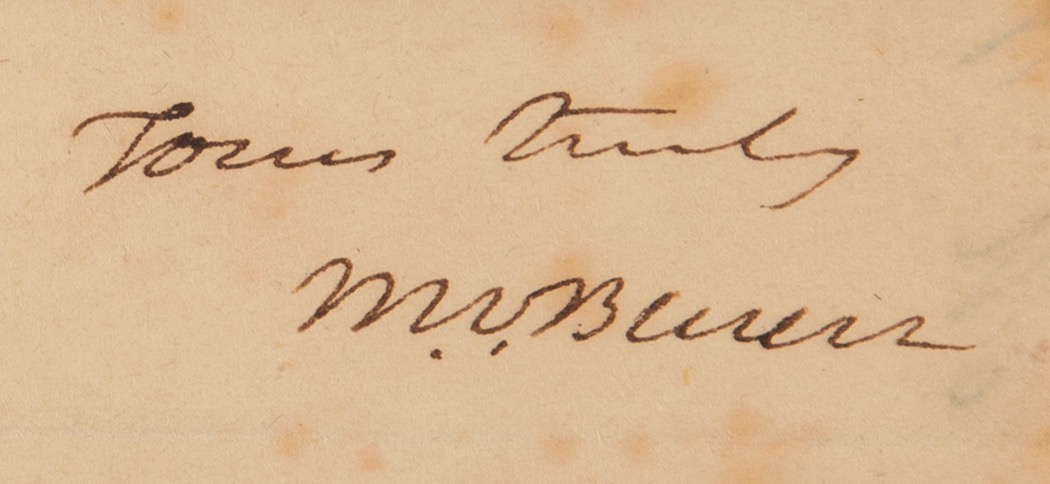 Yours truly
M. V. Buren